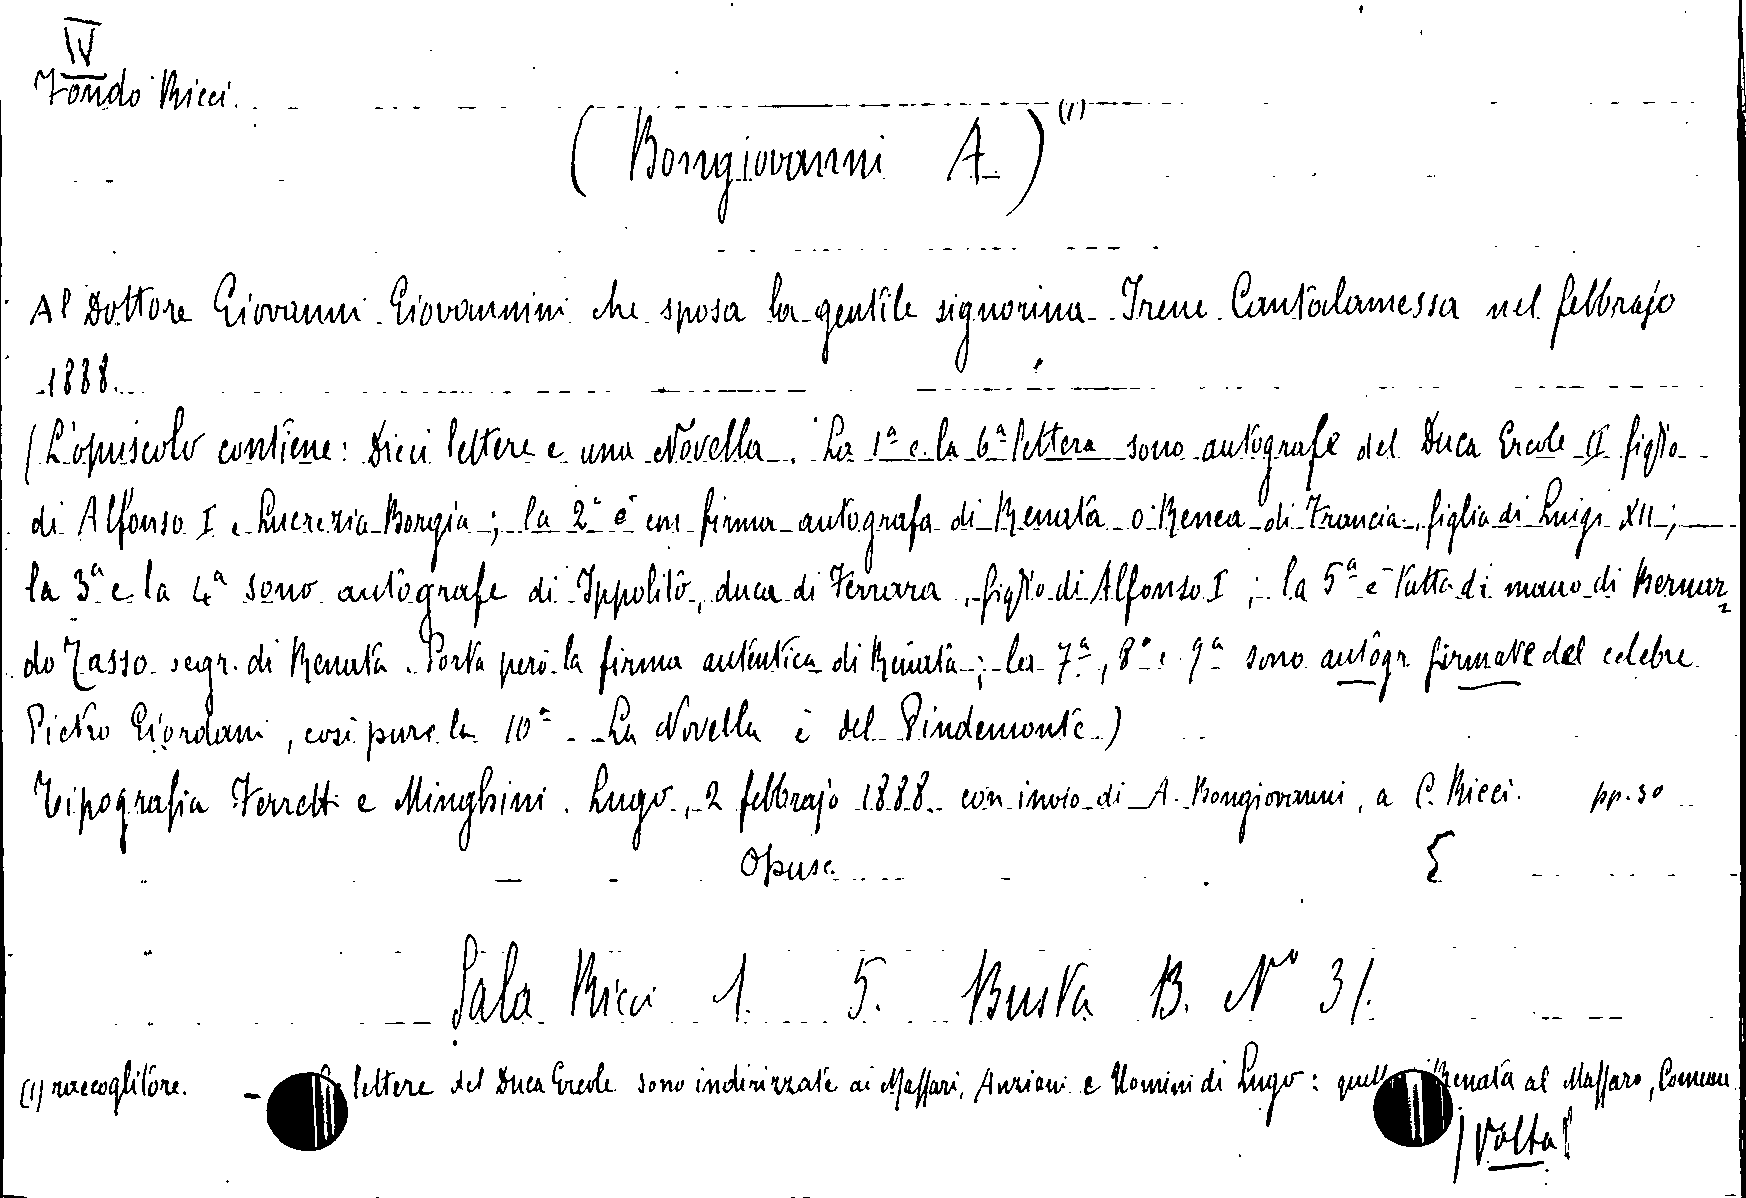 IV
Fondo Ricci.
(Bongiovanni A.) (1)
Al Dottore Giovanni Giovannini che sposa la gentile signorina Irene Cantalamessa nel febbrajo
1888.
(L'opuscolo contiene: Dieci lettere e una Novella. La 1ª e la 6ª lettera sono autografe del Duca Ercole II figlio
di Alfonso I e Lucrezia Borgia; la 2ª è con firma autografa di Renata o Renea di Francia, figlia di Luigi XII;
la 3ª e la 4ª sono autografe di Ippolito, duca di Ferrara, figlio di Alfonso I; la 5ª è tutta di mano di Bernar=
do Tasso segr. di Renata. Porta però la firma autentica di Renata; la 7ª, 8ª e 9ª sono autogr. firmate del celebre
Pietro Giordani, così pure la 10ª. La Novella è del Pindemonte.)
Tipografia Ferretti e Minghini. Lugo, 2 febbrajo 1888. con invio di A. Bongiovanni, a C. Ricci. pp. 30
Opusc.
Sala Ricci 1. 5. Busta B. Nº 31.
(1) raccoglitore. - lettere del Duca Ercole sono indirizzate ai Massari, Anziani e Uomini di Lugo: Renata al Massaro, Comun
/Volta/